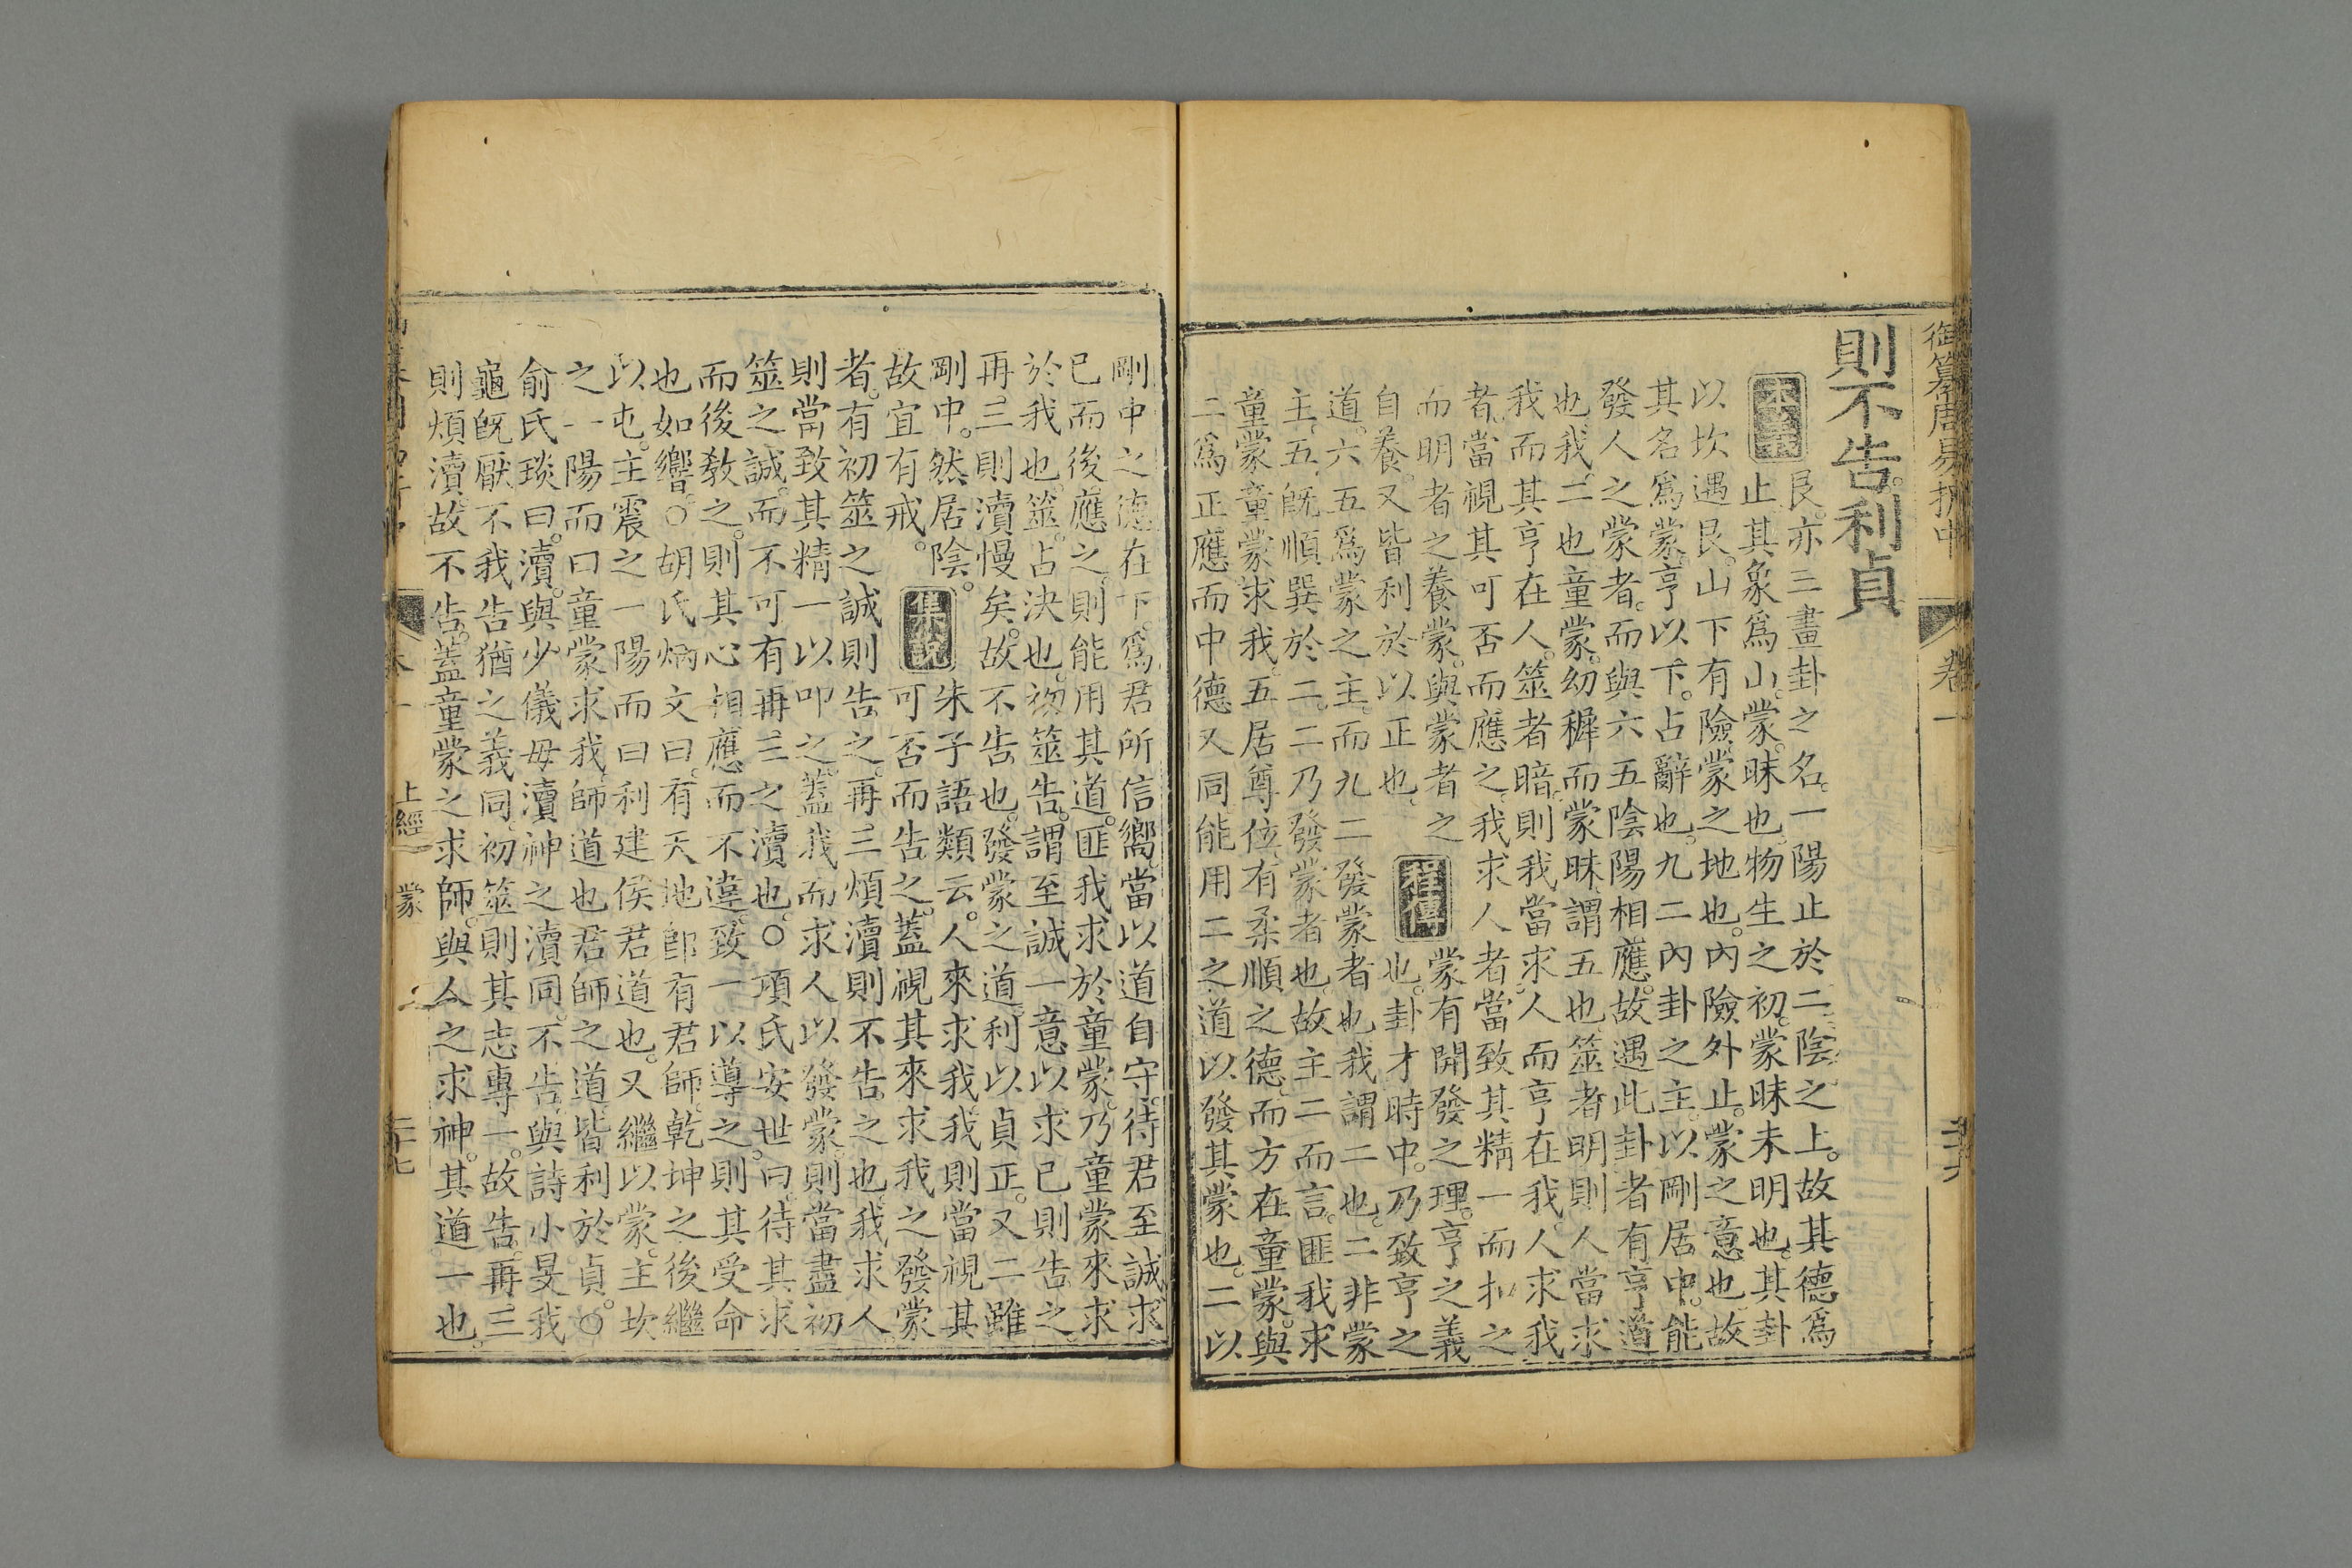 御纂周易折中
卷一
二十六
則不告利貞
本義
艮。亦三畫卦之名。一陽止於二陰之上。故其德爲
止。其象爲山。蒙。昧也。物生之初。蒙昧未明也。其卦
以坎遇艮。山下有險。蒙之地也。內險外止。蒙之意也。故
其名爲蒙。亨以下。占辭也。九二內卦之主。以剛居中。能
發人之蒙者。而與六五陰陽相應。故遇此卦者有亨道
也。我。二也。童蒙。幼穉而蒙昧。謂五也。筮者明。則人當求
我而其亨在人。筮者暗。則我當求人而亨在我。人求我
者。當視其可否而應之。我求人者。當致其精一而扣之。
而明者之養蒙。與蒙者之
自養。又皆利於以正也。
程傳
蒙有開發之理。亨之義
也。卦才時中。乃致亨之
道。六五爲蒙之主。而九二發蒙者也。我謂二也。二非蒙
主。五旣順巽於二。二乃發蒙者也。故主二而言。匪我求
童蒙。童蒙求我。五居尊位。有柔順之德。而方在童蒙。與
二爲正應。而中德又同。能用二之道以發其蒙也。二以
剛中之德在下。爲君所信嚮。當以道自守。待君至誠求
已而後應之。則能用其道。匪我求於童蒙。乃童蒙來求
於我也。筮。占決也。初筮告。謂至誠一意以求已則告之。
再三則瀆慢矣。故不告也。發蒙之道。利以貞正。又二雖
剛中。然居陰。
故宜有戒。
集說
朱子語類云。人來求我。我則當視其
可否而告之。蓋視其來求我之發蒙
者。有初筮之誠則告之。再三煩瀆則不告之也。我求人。
則當致其精一以叩之。蓋我而求人以發蒙。則當盡初
筮之誠。而不可有再三之瀆也。○項氏安世曰。待其求
而後敎之。則其心相應而不違。致一以導之。則其受命
也如響。○胡氏炳文曰。有天地卽有君師。乾坤之後。繼
以屯。主震之一陽。而曰利建侯。君道也。又繼以蒙。主坎
之一陽。而曰童蒙求我。師道也。君師之道。皆利於貞。○
俞氏琰曰。瀆。與少儀毋瀆神之瀆同。不告。與詩小旻我
龜旣厭不我告猶之義同。初筮則其志專一。故告。再三
則煩瀆。故不告。蓋童蒙之求師。與人之求神。其道一也。
上經
蒙
二十七